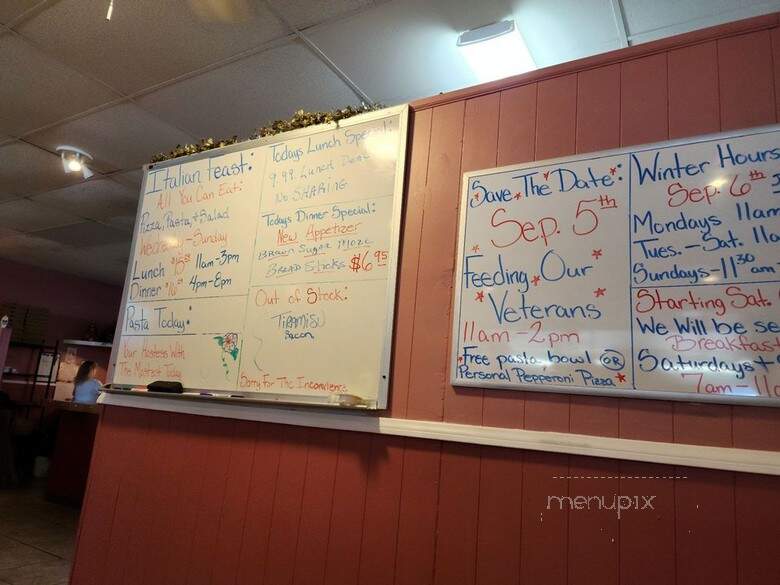 Italian Feast:
All You Can Eat:
Pizza, Pasta, & Salad
Wednesday - Sunday
Lunch 11am-3pm
Dinner 4pm-8pm
Pasta Today:
Our Hostess With
The Mostest Today
Todays Lunch Special:
9.99 Lunch
No SHARING
Todays Dinner Special:
New Appetizer
Brown Sugar
Bread Sticks $6.95
Out of Stock:
TIRAMISU
Bacon
Sorry For The Inconvience
Save The Date:
Sep. 5th
Feeding Our
Veterans
11am-2pm
Free pasta bowl OR
Personal Pepperoni Pizza
Winter Hours
Sep. 6th
Mondays 11am
Tues. - Sat. 11a
Sundays - 11:30 am
Starting Sat.
We Will be se
Breakfast
Saturdays +
7am-11
menupix